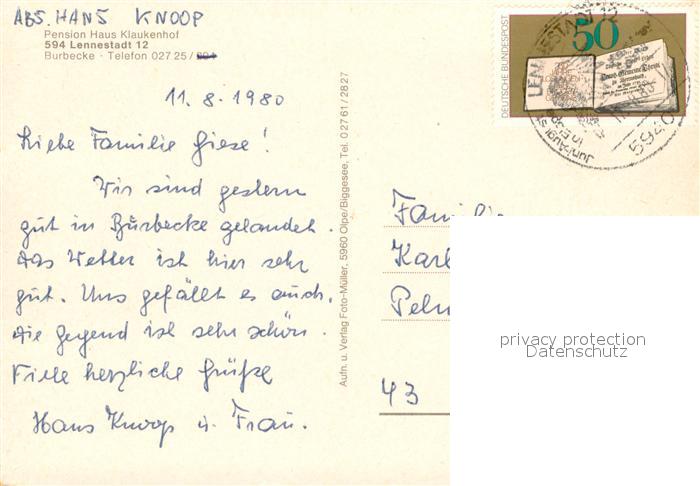 ABS. HANS KNOOP
Pension Haus Klaukenhof
594 Lennestadt 12
Burbecke · Telefon 027 25 /
11.8.1980
Liebe Familie Giese!
Wir sind gestern
gut in Burbecke gelandet.
Das Wetter ist hier sehr
gut. Uns gefällt es auch.
die Gegend ist sehr schön.
Viele herzliche Grüße
Hans Knoop u. Frau.
Aufn. u. Verlag Foto-Müller, 5960 Olpe/Biggesee, Tel. 0 27 61 / 28 27
DEUTSCHE BUNDESPOST
50
LENNESTADT 12
5940
Familie
Karl
43
privacy protection
Datenschutz